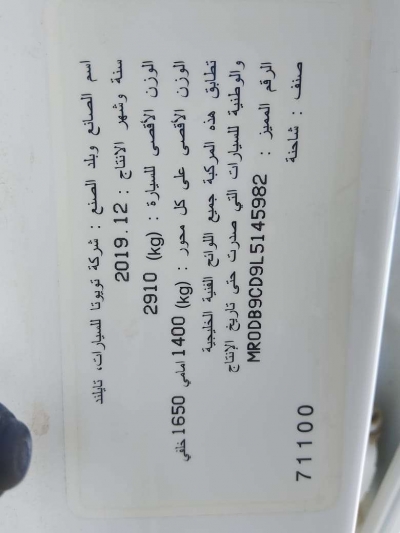 اسم الصانع وبلد الصنع : شركة تويوتا للسيارات، تايلند
سنة وشهر الانتاج : 2019.12
الوزن الأقصى للسيارة : 2910 (kg)
الوزن الأقصى على كل محور : (kg) 1400 امامي 1650 خلفي
تطابق هذه المركبة جميع اللوائح الفنية الخليجية
والوطنية للسيارات التي صدرت حتى تاريخ الإنتاج
الرقم المميز : MR0DB9CD9L5145982
صنف : شاحنة
71100